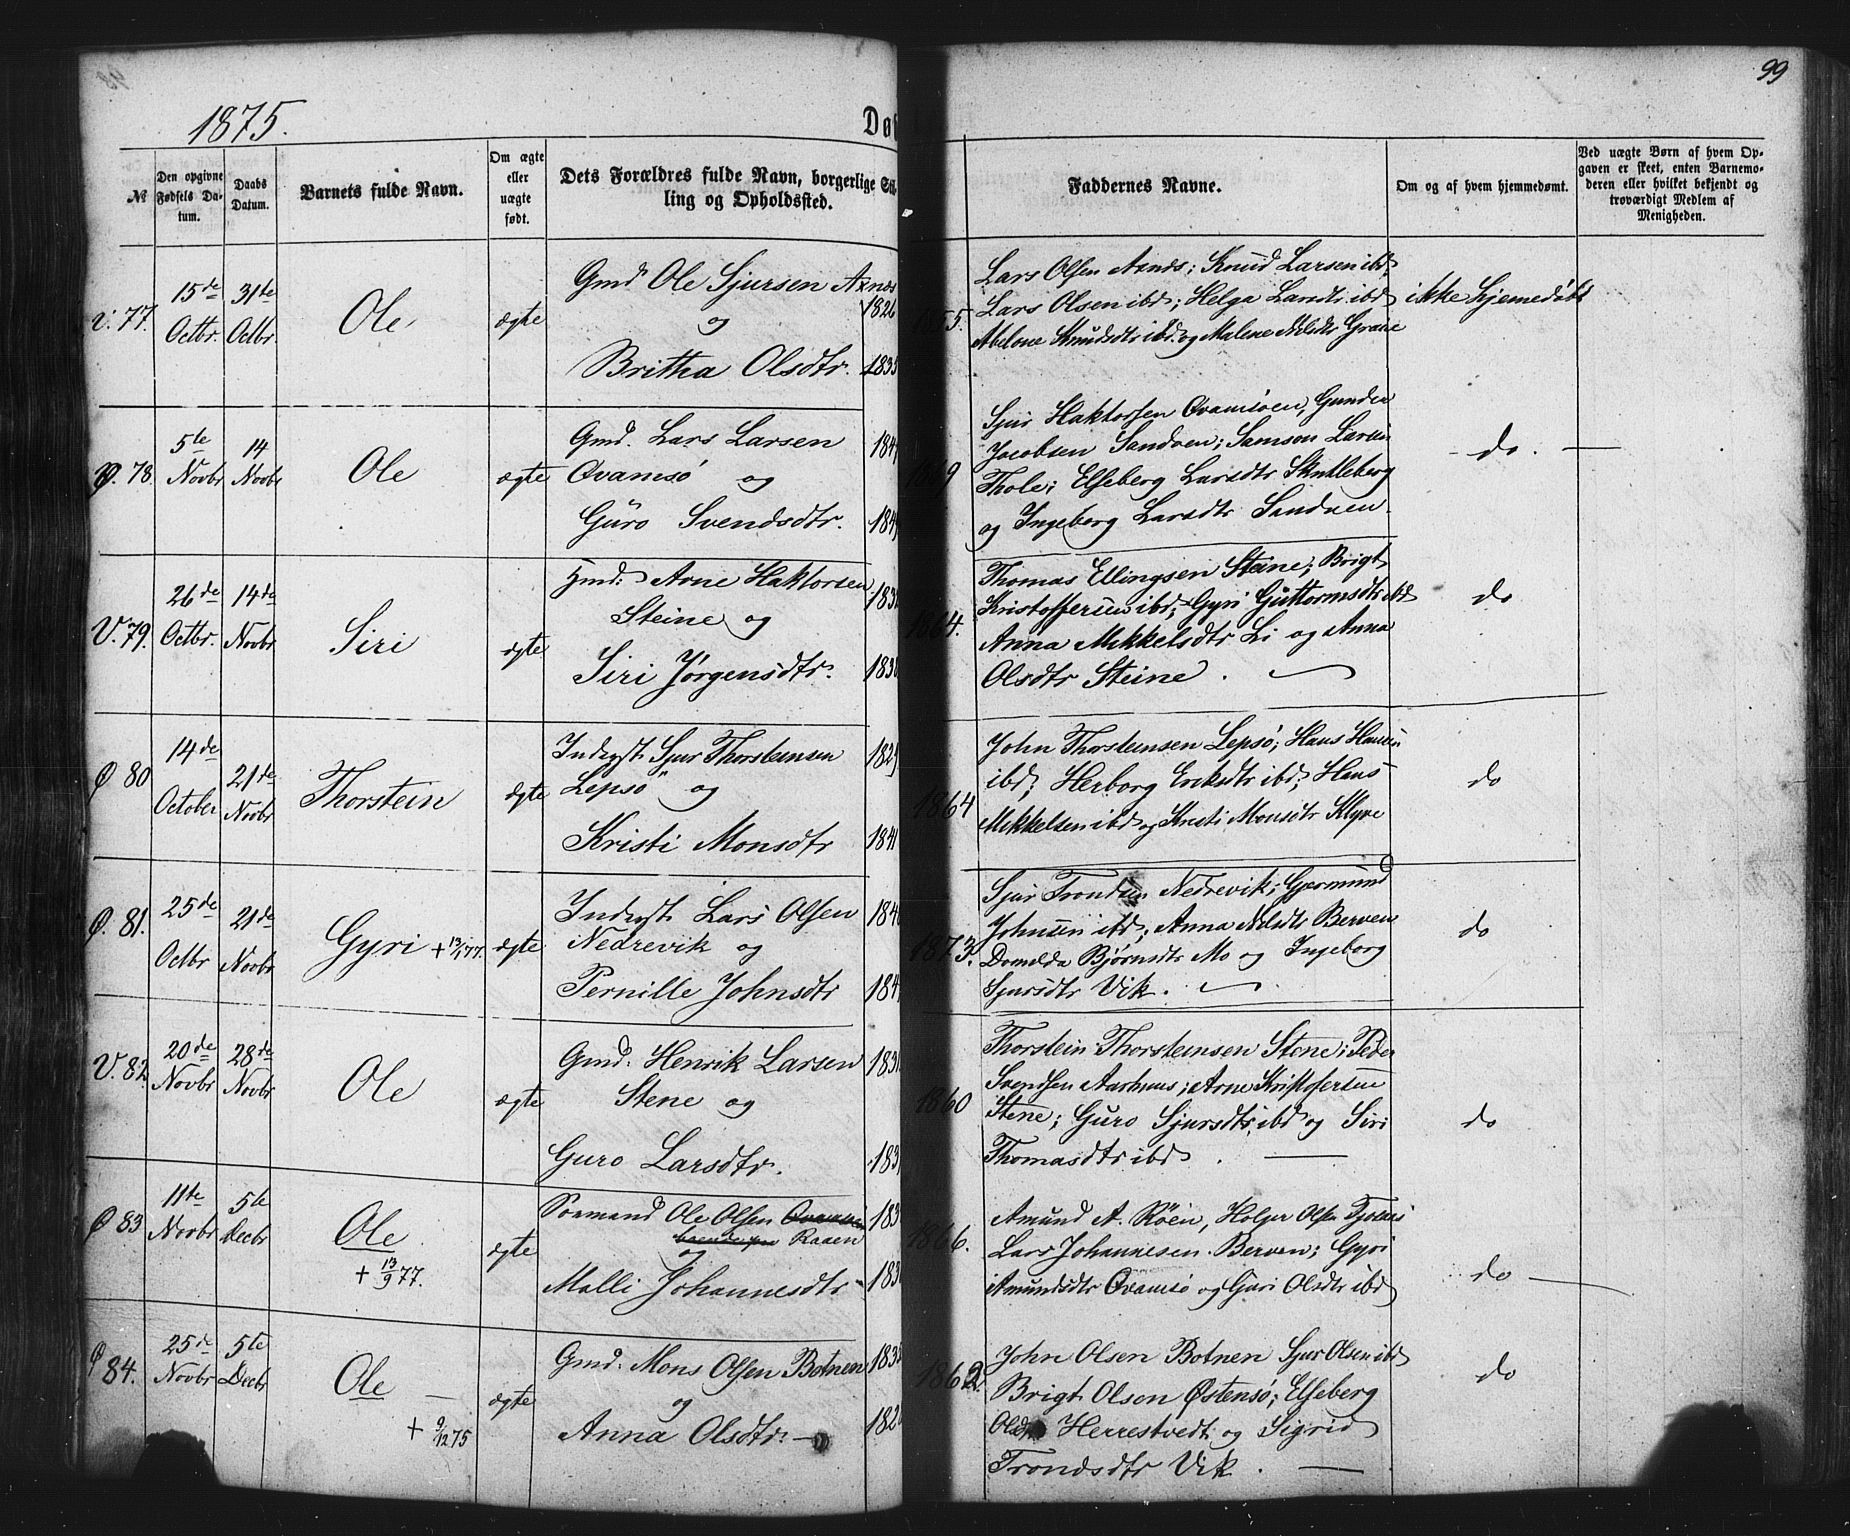 99
1875.
Døb
№
Den opgivne Fødsels Datum.
Daabs Datum.
Barnets fulde Navn.
Om ægte eller uægte født.
Dets Forældres fulde Navn, borgerlige Stilling og Opholdssted.
Faddernes Navne.
Om og af hvem hjemmedøbt.
Ved uægte Børn af hvem Opgaven er skeet, enten Barnemoderen eller hvilket bekjendt og troværdigt Medlem af Menigheden.
V. 77.
15de Octbr.
31te Octbr.
Ole
ægte
Gmd Ole Sjursen Axnes 1826
og
Britha Olsdtr. 1835
Lars Olsen Axnes; Knud Larsen ibd,
Lars Olsen ibd; Helga Larsdtr ibd
Abelone Knudsdtr ibd. og Malene Nilsdtr Grave
ikke hjemedøbt
Ø. 78.
5te Novbr
14 Novbr
Ole
ægte
Gmd. Lars Larsen
Øvamsø og
Guro Svendsdtr.
1869
Sjur Haktorsen Øvamsøen, Gunder
Jacobsen Sandven; Samson Larsen
Thole; Elseberg Larsdtr Skutleberg
og Ingeborg Larsdtr Sandven.
do.
V. 79.
26de Octbr.
14de Novbr
Siri
ægte
Hmd: Arne Haktorsen
Steine og
Siri Jørgensdtr.
1864.
Thomas Ellingsen Steine; Brigt
Kristoffersen ibd; Gyri Guttormsdtr ibd
Anna Mikkelsdtr Li og Anna
Olsdtr Steine.
do
Ø 80
14de October
21de Novbr
Thorstein
ægte
Inderst Sjur Thorsteinsen 1829
Lepsø og
Kristi Monsdtr 1841
1864
John Thorsteinsen Lepsø; Hans Hansen
ibd; Herborg Eriksdtr ibd; Hans
Mikkelsen ibd og Kristi Monsdtr Klyve
do
Ø. 81.
25de Octbr
21de Novbr
Gyri + 13/1 77.
ægte
Inderst Lars Olsen
Nedrevik og
Pernille Johnsdtr
1873.
Sjur Trondsen Nedrevik; Gjermund
Johnsen ibd; Anna Nilsdtr Berven
Domilda Bjørnsdtr Mo og Ingeborg
Sjursdtr Vik.
do
V. 82.
20de Novbr
28de Novbr
Ole
ægte
Gmd. Henrik Larsen
Stene og
Guro Larsdtr.
1860
Thorstein Thorsteinsen Stene; Peder
Svendsen Aarhuus; Arne Kristofersen
Stene; Guro Sjursdtr ibd og Siri
Thomasdtr ibd.
do
Ø 83
11te Novbr
5te Decbr
Ole
+ 13/9 77.
ægte
Sømand Ole Olsen
Raaen
og
Malli Johannesdtr
1866.
Amund A. Røen, Holger Olsen
Lars Johannesen Berven; Gyri
Amundsdtr Øvamsø og Guri Olsdtr ibd
do
Ø 84.
25de Novbr
5te Decbr
Ole
+ 9/12 75
ægte
Gmd. Mons Olsen Botnen
og
Anna Olsdtr.
1862.
John Olsen Botnen Sjur Olsen ibd
Brigt Olsen Østensø; Elseberg
Olsdtr Herrestvedt og Sigrid
Trondsdtr Vik.
do